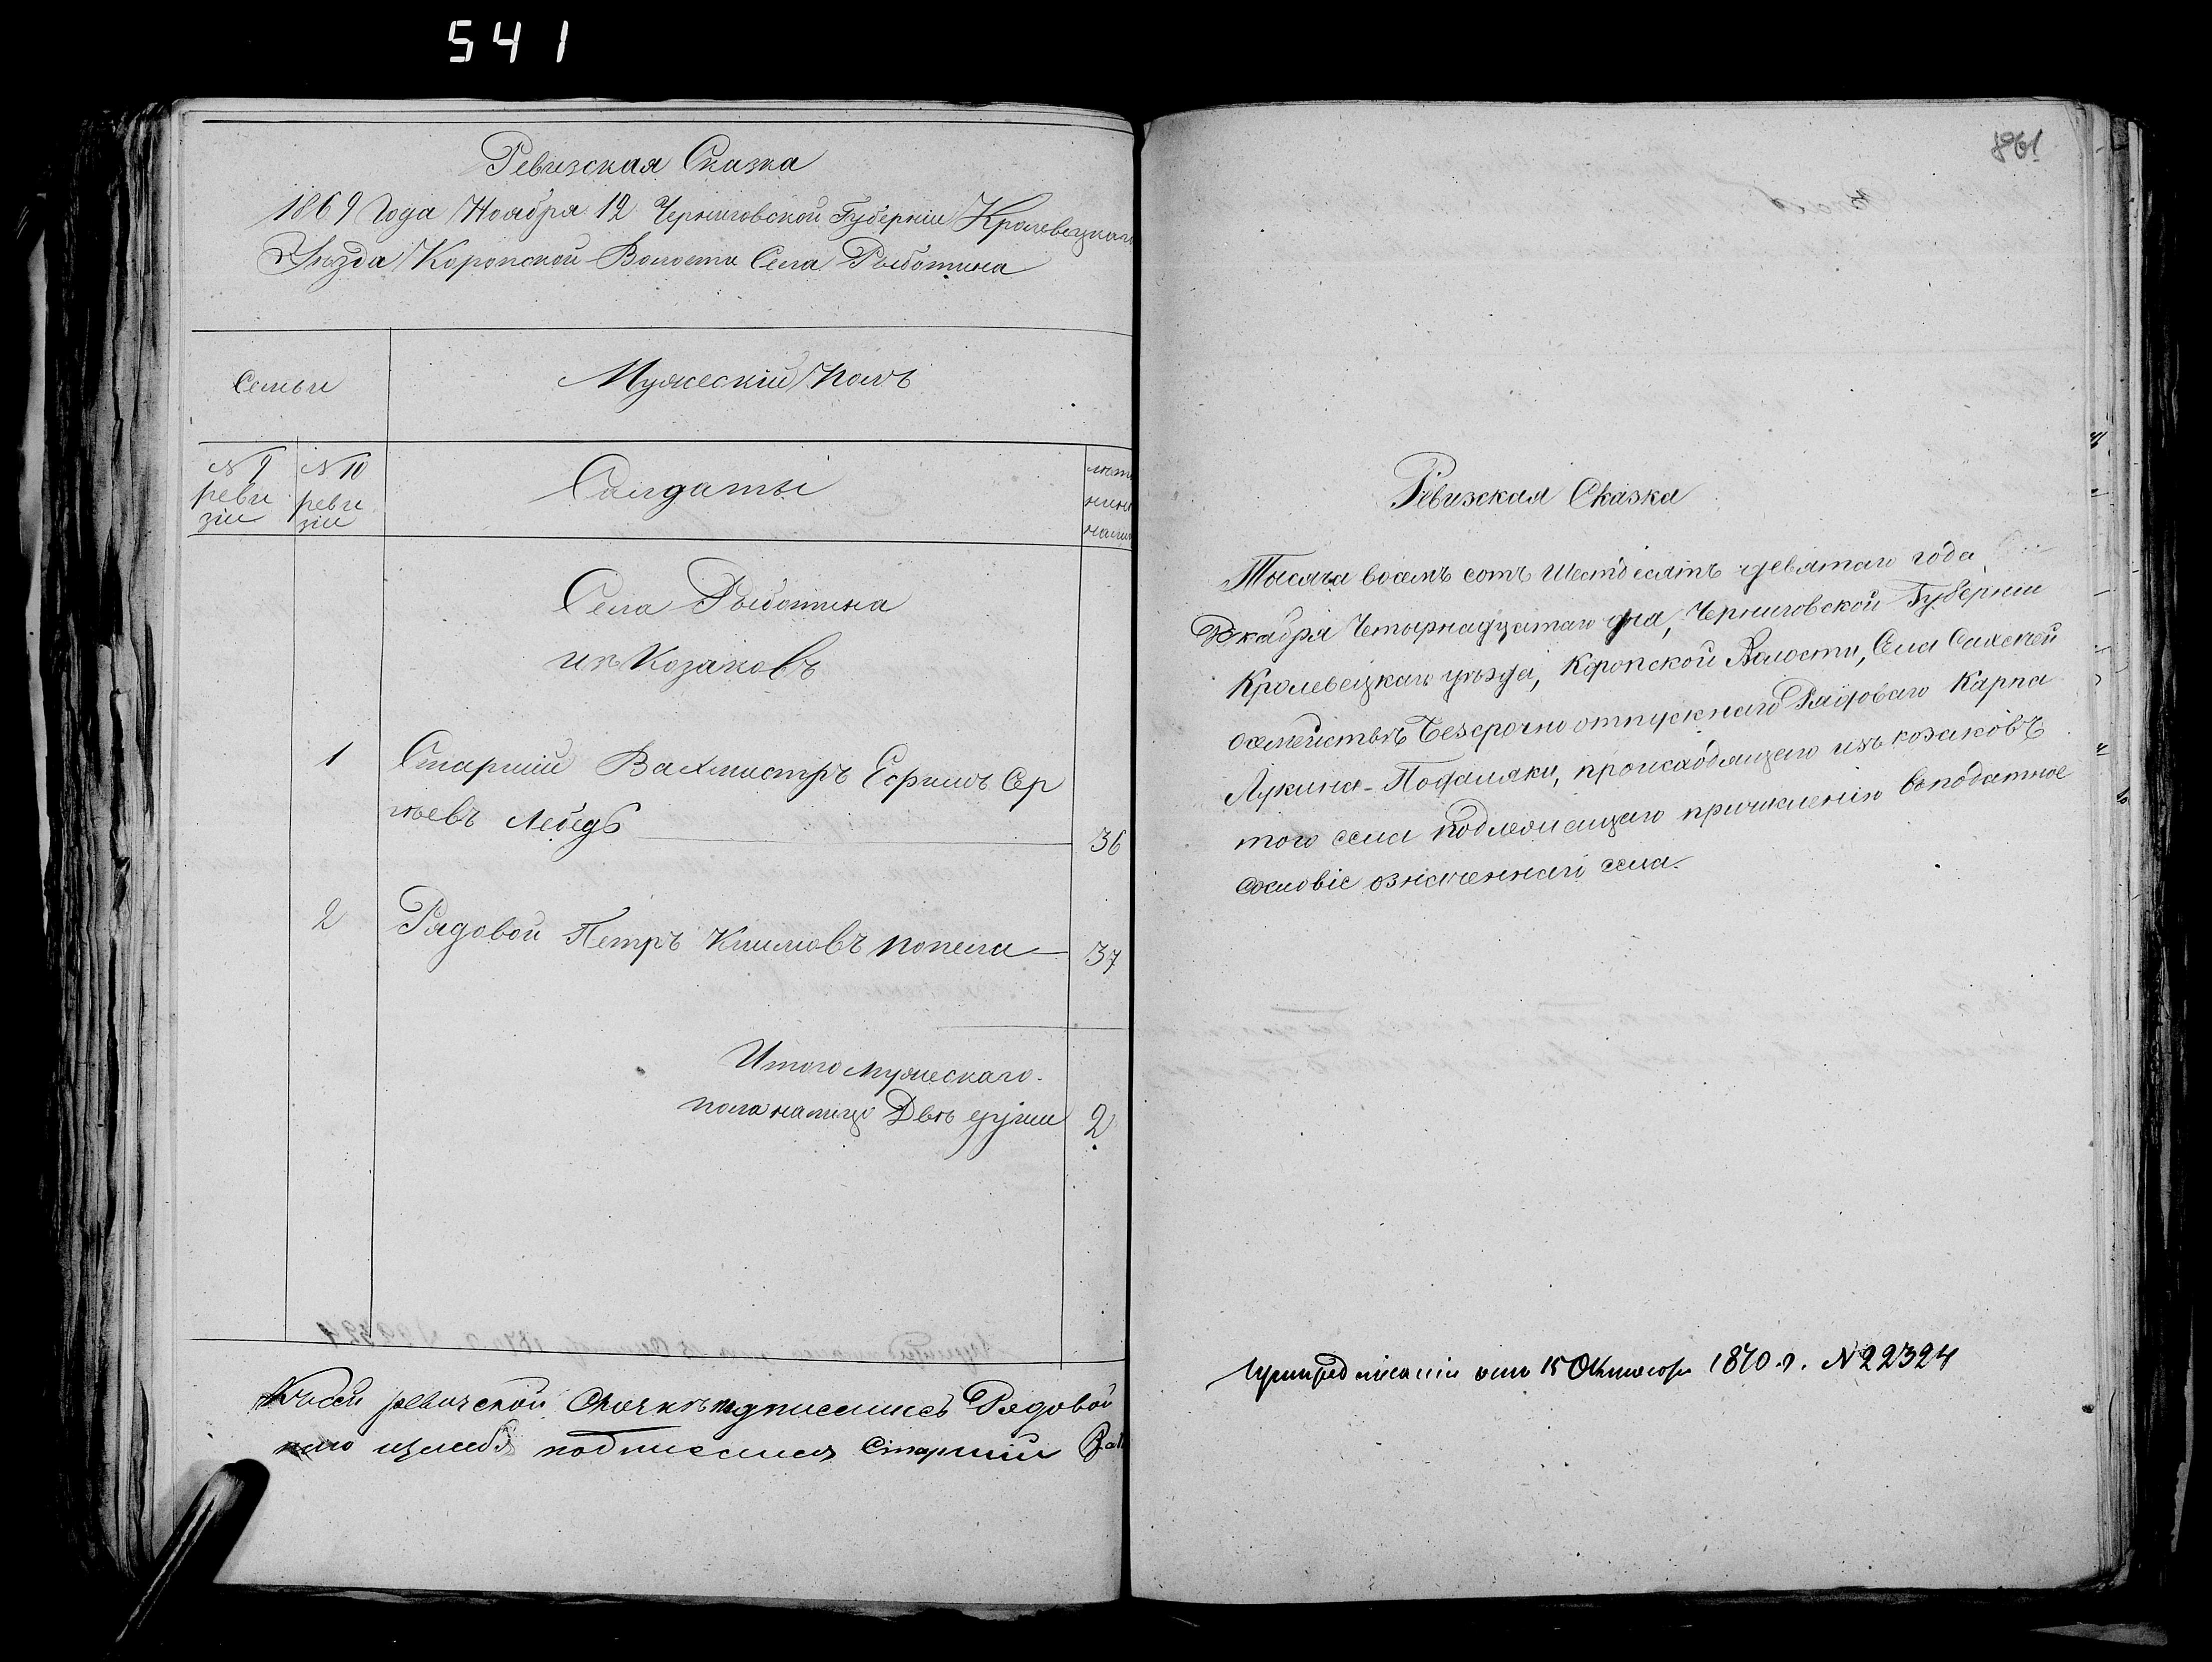 541
Ревизская Сказка
1869 Года Ноября 12 Черниговской Губерніи Кролевецкаго
Уѣзда Коропской Волости Села Рыботина
Семьи
Мужескій Полъ
N 9 ревизіи
N 10 ревизіи
Салдаты
лѣтъ
ныне
налицо
Села Рыботина
изъ Козаковъ
1 Старшій Вахмистръ Ефимъ Сер
гѣевъ 36
2 Рядовой Петръ Климовъ Попела 37
Итого мужескаго
пола налицо Двѣ души 2
Ксей ревизской Сказкѣ подписались Рядовой
подписался Старшій Вах
861
Ревизская Сказка
Тысяча восемъ сотъ Шестдесятъ девятаго года
Декабря Четырнадцатаго дня, Черниговской Губерніи
Кролевецкаго уѣзда, Коропской Волости, Села
о семействѣ безсрочно отпускнаго Рядоваго Карпа
Лукина, происходящаго изъ козаковъ
того села подлежащаго причисленію въ податное
сословіе означеннаго села.
При предписаніи отъ 15 Октября 1870 г. N 22324